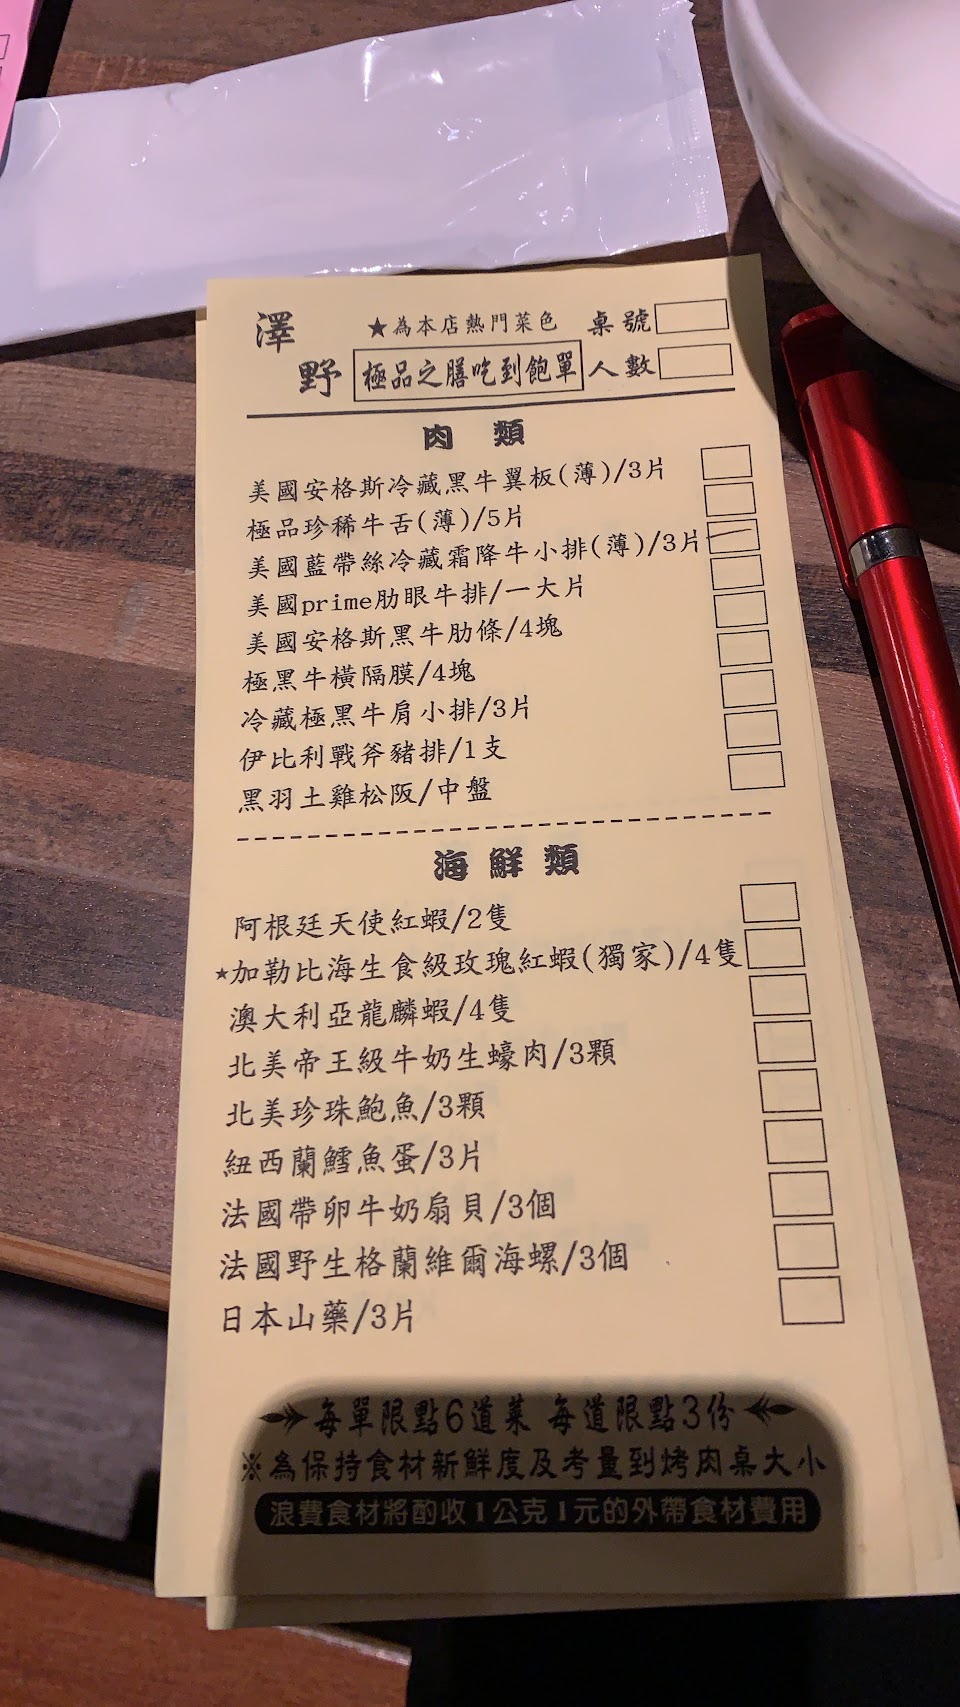 澤野
★為本店熱門菜色 桌號
極品之膳吃到飽單 人數
肉類
美國安格斯冷藏黑牛翼板(薄)/3片
極品珍稀牛舌(薄)/5片
美國藍帶絲冷藏霜降牛小排(薄)/3片
美國prime肋眼牛排/一大片
美國安格斯黑牛肋條/4塊
極黑牛橫隔膜/4塊
冷藏極黑牛肩小排/3片
伊比利戰斧豬排/1支
黑羽土雞松阪/中盤
海鮮類
阿根廷天使紅蝦/2隻
★加勒比海生食級玫瑰紅蝦(獨家)/4隻
澳大利亞龍麟蝦/4隻
北美帝王級牛奶生蠔肉/3顆
北美珍珠鮑魚/3顆
紐西蘭鱈魚蛋/3片
法國帶卵牛奶扇貝/3個
法國野生格蘭維爾海螺/3個
日本山藥/3片
每單限點6道菜 每道限點3份
※為保持食材新鮮度及考量到烤肉桌大小
浪費食材將酌收1公克1元的外帶食材費用